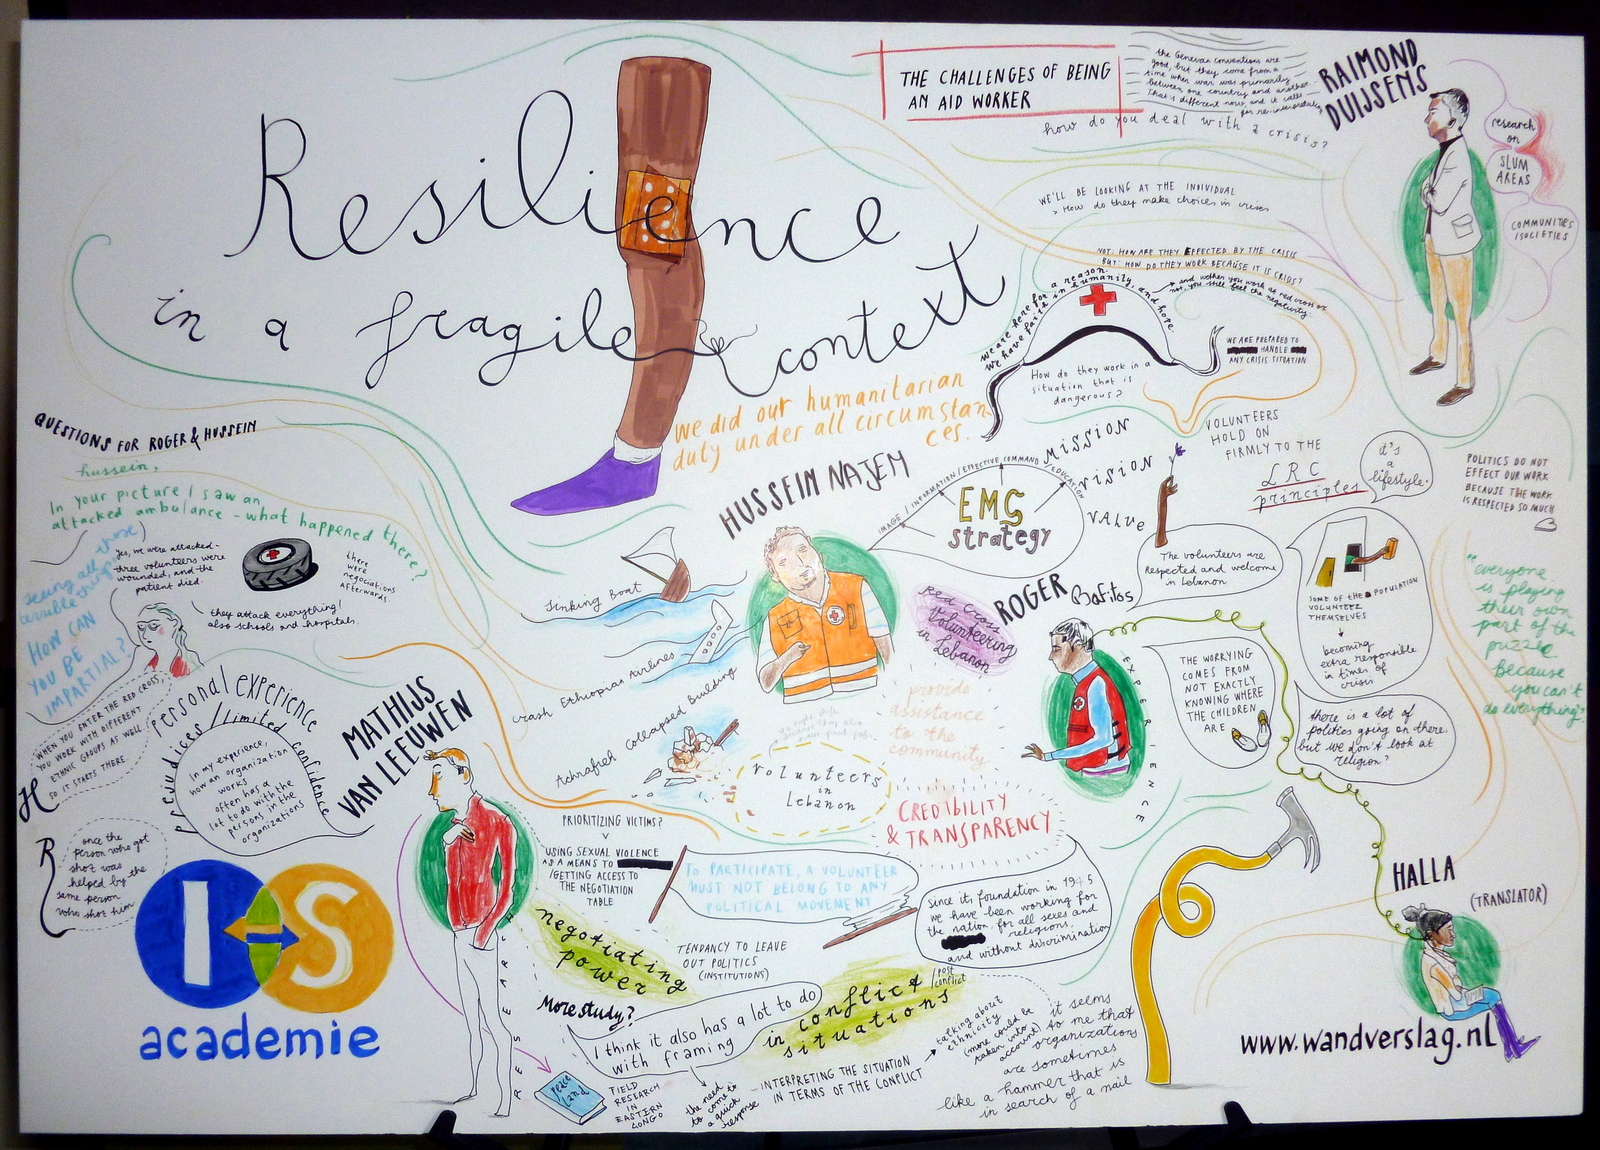 Resilience
in a fragile context
THE CHALLENGES OF BEING
AN AID WORKER
the Geneva Conventions are
good, but they come from a
time when war was primarily
between one country and another.
That's different now, and it calls
for re-interpretation
how do you deal with a crisis?
RAIMOND
DUIJSENS
research
on
SLUM
AREAS
COMMUNITIES
/SOCIETIES
WE'LL BE LOOKING AT THE INDIVIDUAL
> How do they make choices in crises
NOT: HOW ARE THEY EFFECTED BY THE CRISIS
BUT: HOW DO THEY WORK BECAUSE IT IS CRISIS?
we are here for a reason.
we have faith in humanity, and hope.
and wether you work at red cross or
not, you still feel the negativity.
WE ARE PREPARED TO
HANDLE
ANY CRISIS SITUATION
How do they work in a
situation that is
dangerous?
we did out humanitarian
duty under all circumstan
ces.
HUSSEIN NAJEM
IMAGE / INFORMATION / EFFECTIVE COMMAND / EDUCATION
EMG
strategy
MISSION
VISION
VALUE
VOLUNTEERS
HOLD ON
FIRMLY TO THE
LRC
principles
it's
a
lifestyle.
POLITICS DO NOT
EFFECT OUR WORK
BECAUSE THE WORK
IS RESPECTED SO MUCH
The volunteers are
Respected and welcome
in Lebanon
SOME OF THE POPULATION
VOLUNTEER
THEMSELVES
becoming
extra responsible
in times of
crisis
"everyone
is playing
their own
part of the
puzzle.
Because
you can't
do everything"
QUESTIONS FOR ROGER & HUSSEIN
hussein,
In your picture I saw an
attacked ambulance - what happened there?
seeing all those
terrible things
HOW CAN
YOU BE
IMPARTIAL?
Yes, we were attacked-
three volunteers were
wounded, and the
patient died.
there
were
negociations
afterwards.
they attack everything!
also schools and hospitals.
H
WHEN YOU ENTER THE RED CROSS,
YOU WORK WITH DIFFERENT
ETHNIC GROUPS AS WELL
SO IT STARTS THERE
R
once the
person who got
shot was
helped by the
same person
who shot him
personal experience
prejudices / limited confidence
in my experience,
how an organization
works
often has a
lot to do with the
persons in the
organizations
MATHIJS
VAN LEEUWEN
Sinking Boat
Crash Ethiopias Airlines
Achrafieh Collapsed Building
Red Cross
Volunteering
in Lebanon
ROGER Bafitos
EXPERIENCE
provide
assistance
to the
community
volunteers
in
Lebanon
CREDIBILITY
& TRANSPARENCY
THE WORRYING
COMES FROM
NOT EXACTLY
KNOWING WHERE
THE CHILDREN
ARE
there is a lot of
politics going on there,
but we don't look at
religion?
PRIORITIZING VICTIMS?
USING SEXUAL VIOLENCE
AS A MEANS TO
/GETTING ACCESS TO
THE NEGOTIATION
TABLE
TO PARTICIPATE, A VOLUNTEER
MUST NOT BELONG TO ANY
POLITICAL MOVEMENT
Since it, foundation in 1945
we have been working for
the nation, for all sexes and
religions,
and without discrimination
negotiating
power
TENDANCY TO LEAVE
OUT POLITICS
(INSTITUTIONS)
RESEARCH
More study?
I think it also has a lot to do
with framing
in conflict
situations
/post
conflict
talking about
ethnicity
(more could be
taken into
account)
it seems
to me that
organizations
are sometimes
like a hammer that is
in search of a nail
INTERPRETING THE SITUATION
IN TERMS OF THE CONFLICT
peace
land
FIELD
RESEARCH
IN
EASTERN
CONGO
the need
to come w
a quick
response
HALLA
(TRANSLATOR)
IS
academie
www.wandverslag.nl